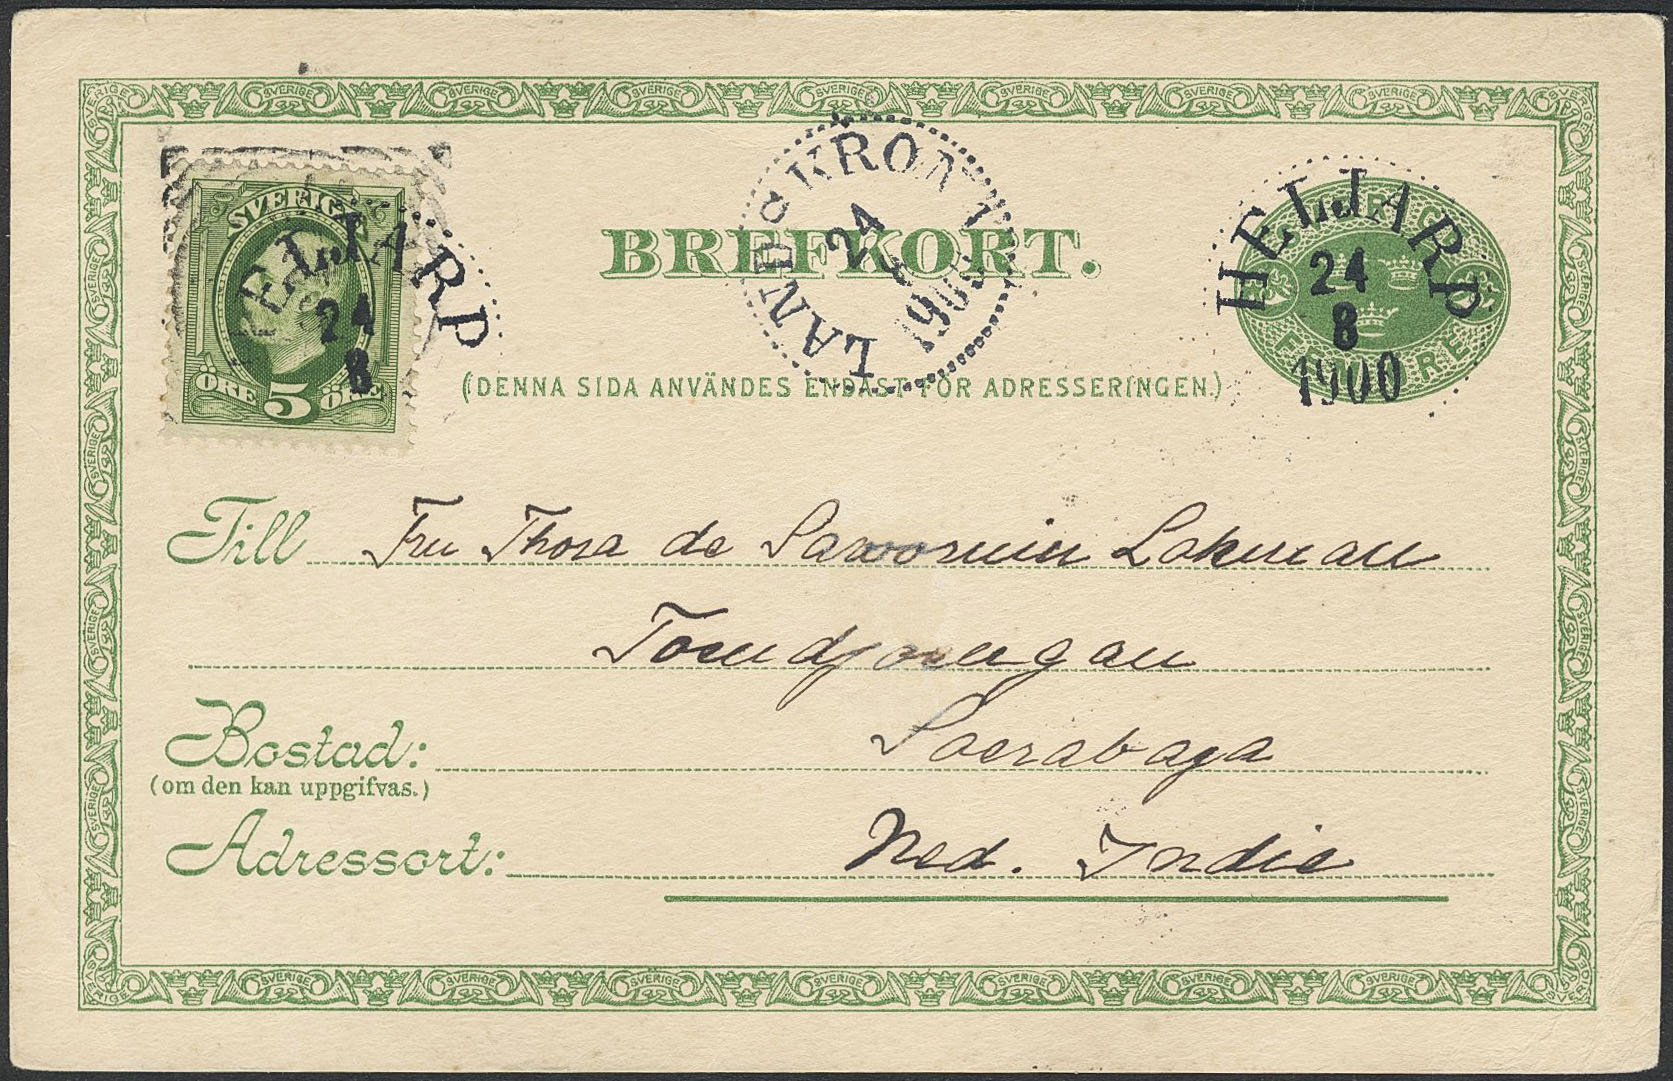 SVERIGE
ÖRE 5 ÖRE
HELJARP
24
8
LANDSKRONA
24
8
1900
HELJARP
24
8
1900
BREFKORT.
(DENNA SIDA ANVÄNDES ENDAST FÖR ADRESSERINGEN.)
Till Fru Thora de Savornin Lohman
Toendjoengan
Bostad: Soerabaja
(om den kan uppgifvas.)
Adressort: Ned. Indie